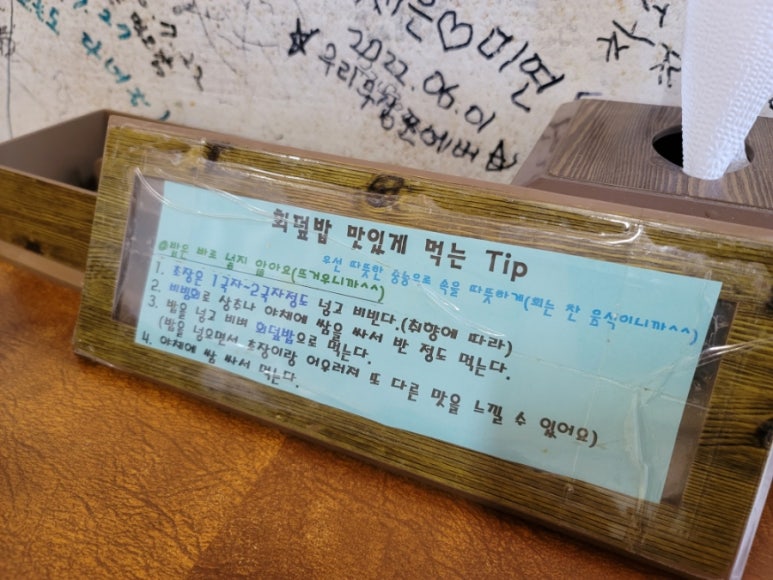 미면
2022.06.01
회덮밥 맛있게 먹는 Tip
우선 따뜻한 숭늉으로 속을 따뜻하게(회는 찬 음식이니까^^)
@밥은 바로 넣지 않아요(뜨거우니까^^)
1. 초장은 1국자~2국자정도 넣고 비빈다.(취향에 따라)
2. 비빔회로 상추나 야채에 쌈을 싸서 반 정도 먹는다.
3. 밥을 넣고 비벼 회덮밥으로 먹는다.
(밥을 넣으면서 초장이랑 어우러져 또 다른 맛을 느낄 수 있어요)
4. 야채에 쌈 싸서 먹는다.